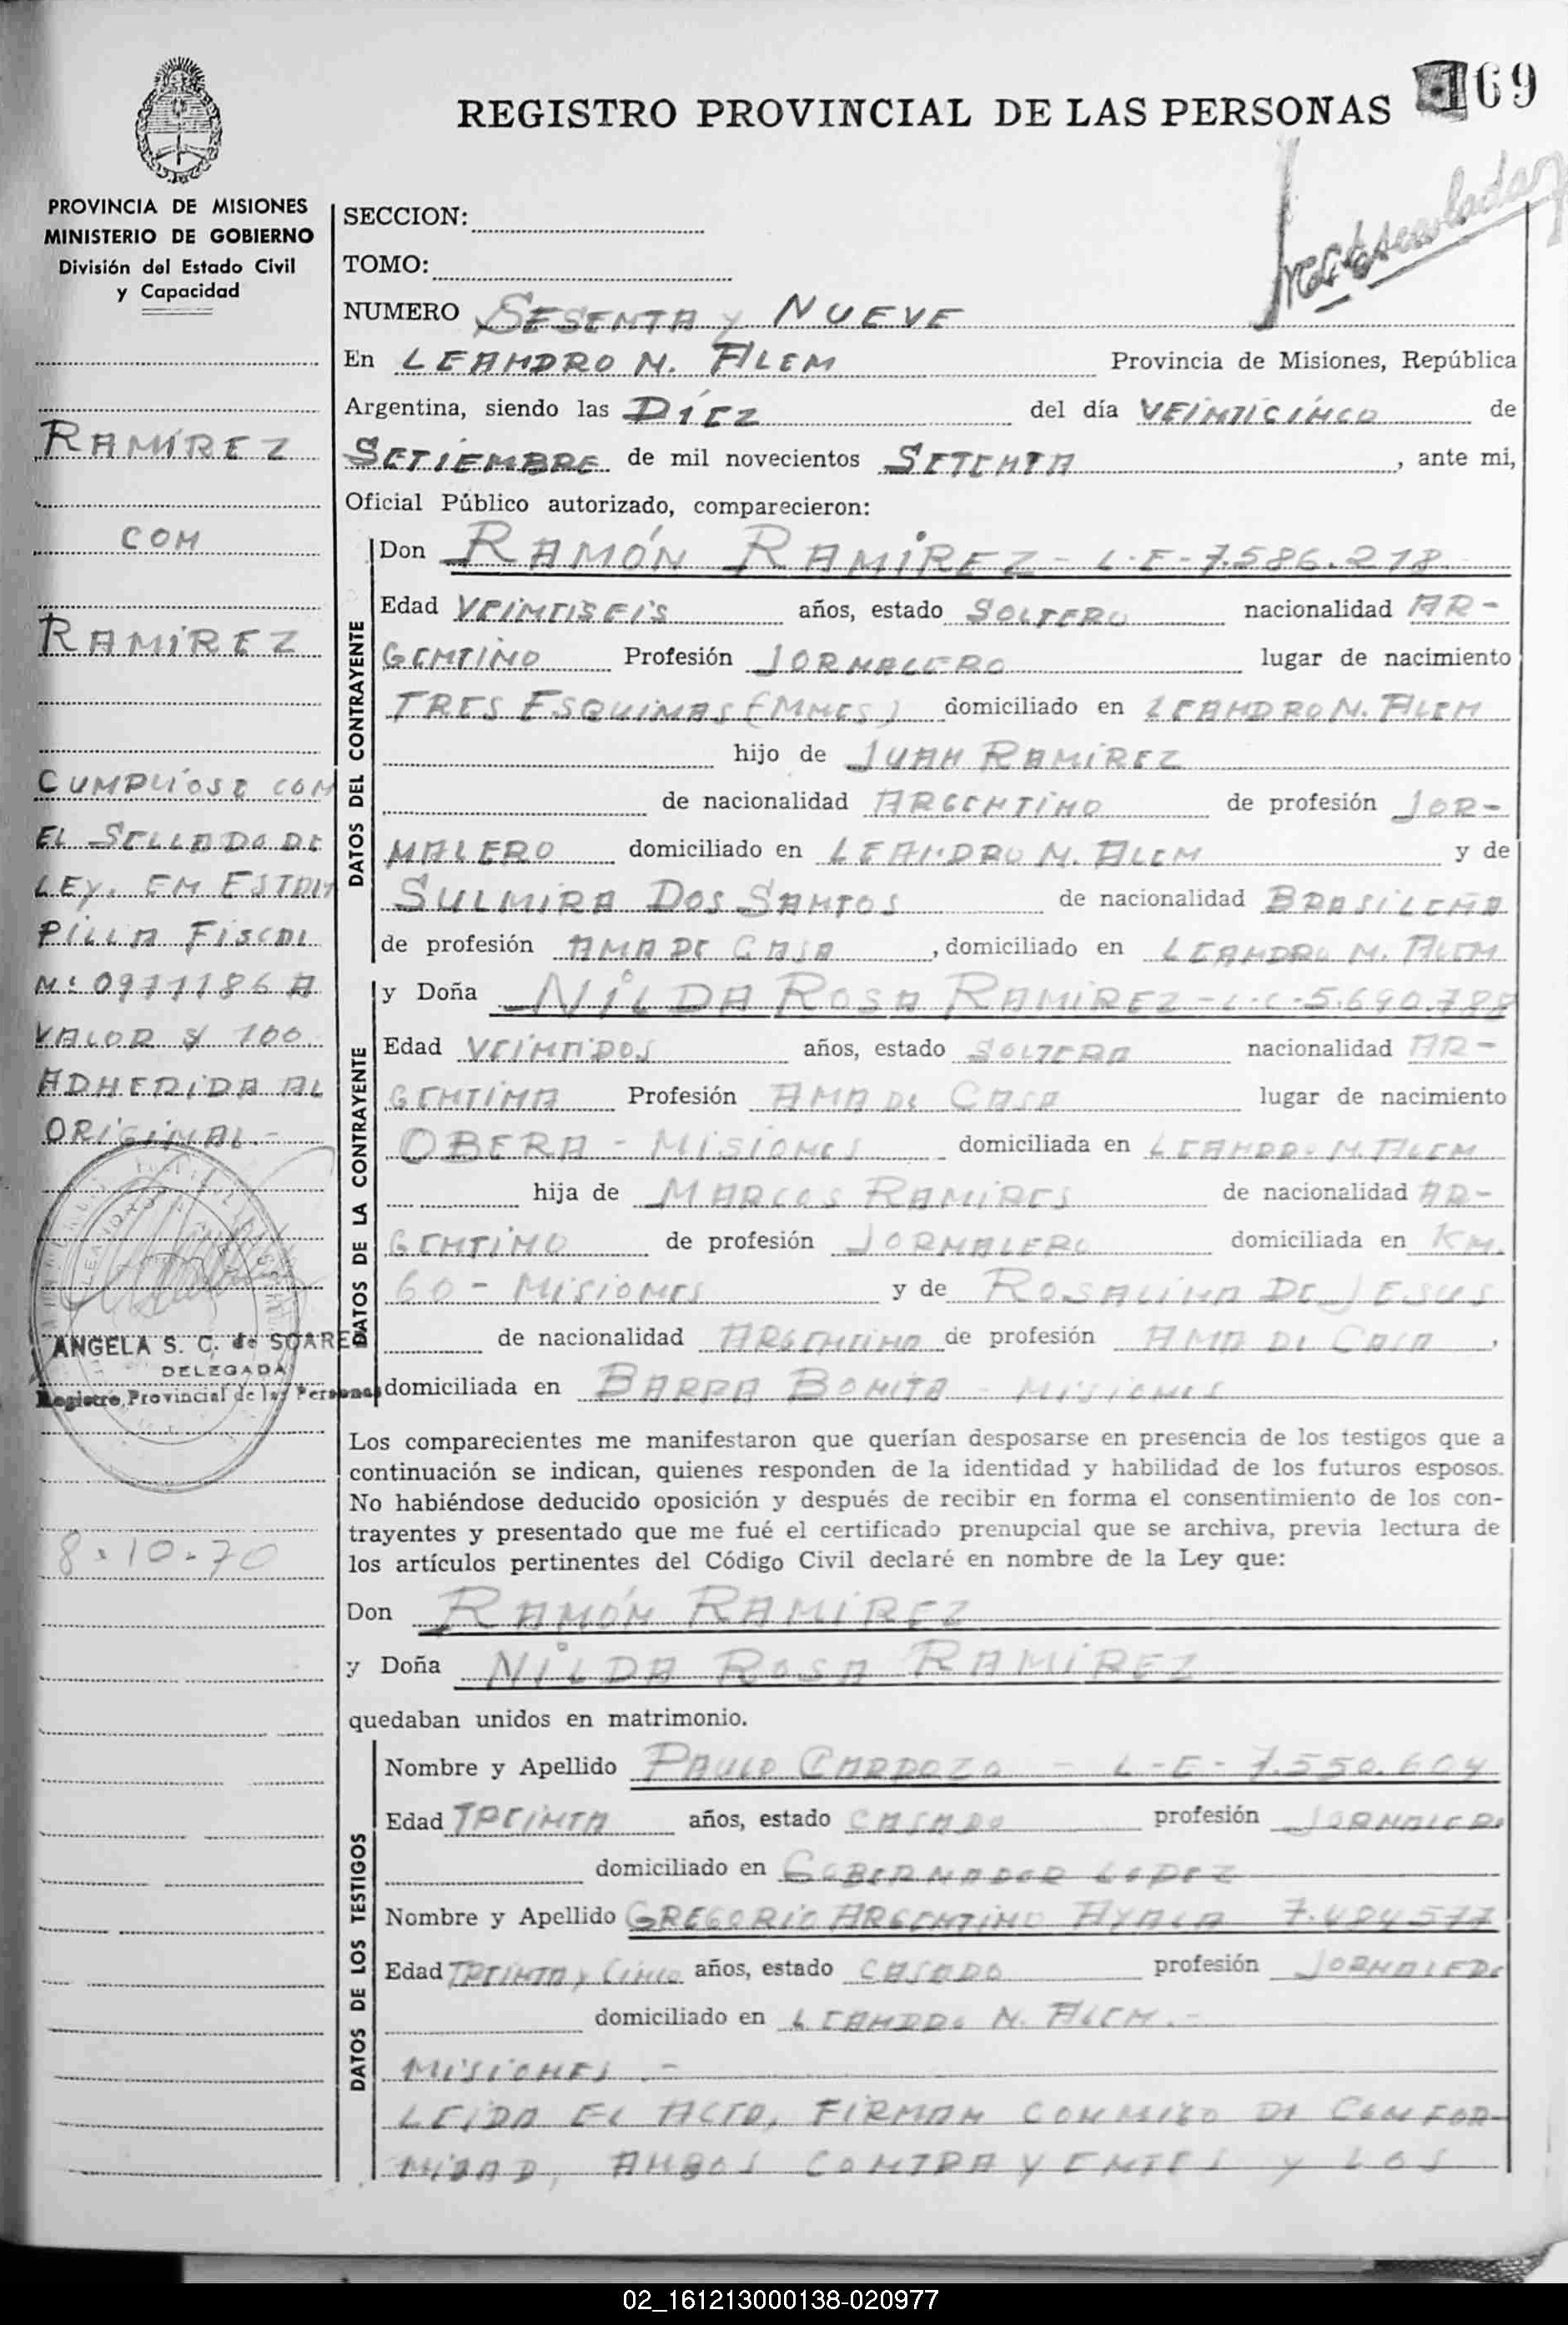 REGISTRO PROVINCIAL DE LAS PERSONAS 169
PROVINCIA DE MISIONES
MINISTERIO DE GOBIERNO
División del Estado Civil
y Capacidad
RAMÍREZ
CON
RAMIREZ
CUMPLIOSE CON
EL SELLADO DE
LEY, EN ESTAM
PILLA FISCAL
Nº 0971186 A
VALOR $ 100
ADHERIDA AL
ORIGINAL.-
ANGELA S. C. de SOARES
DELEGADA
Registro Provincial de las Personas
8.10.70
SECCION:
TOMO:
NUMERO SESENTA y NUEVE
En LEANDRO N. ALEM Provincia de Misiones, República
Argentina, siendo las DIEZ del día VEINTICINCO de
SETIEMBRE de mil novecientos SETENTA, ante mi,
Oficial Público autorizado, comparecieron:
DATOS DEL CONTRAYENTE
Don RAMÓN RAMIREZ - L-E-7.586.278
Edad VEINTISEIS años, estado SOLTERO nacionalidad AR-
GENTINO Profesión JORNALERO lugar de nacimiento
TRES ESQUINAS (MNES) domiciliado en LEANDRO N. ALEM
hijo de JUAN RAMIREZ
de nacionalidad ARGENTINO de profesión JOR-
NALERO domiciliado en LEANDRO N. ALEM y de
SULMIRA DOS SANTOS de nacionalidad BRASILEÑA
de profesión AMA DE CASA, domiciliado en LEANDRO N. ALEM
DATOS DE LA CONTRAYENTE
y Doña NILDA ROSA RAMIREZ - L-C-5.690.788
Edad VEINTIDOS años, estado SOLTERA nacionalidad AR-
GENTINA Profesión AMA DE CASA lugar de nacimiento
OBERA - MISIONES domiciliada en LEANDRO N. ALEM
hija de MARCOS RAMIRES de nacionalidad AR-
GENTINO de profesión JORNALERO domiciliada en KM.
60 - MISIONES y de ROSALINA DE JESUS
de nacionalidad ARGENTINA de profesión AMA DE CASA,
domiciliada en BARRA BONITA - MISIONES
Los comparecientes me manifestaron que querían desposarse en presencia de los testigos que a
continuación se indican, quienes responden de la identidad y habilidad de los futuros esposos.
No habiéndose deducido oposición y después de recibir en forma el consentimiento de los con-
trayentes y presentado que me fué el certificado prenupcial que se archiva, previa lectura de
los artículos pertinentes del Código Civil declaré en nombre de la Ley que:
Don RAMÓN RAMIREZ
y Doña NILDA ROSA RAMIREZ
quedaban unidos en matrimonio.
DATOS DE LOS TESTIGOS
Nombre y Apellido PAULO CARDOZO - L-E-7.550.604
Edad TREINTA años, estado CASADO profesión JORNALERO
domiciliado en GOBERNADOR LOPEZ
Nombre y Apellido GREGORIO ARGENTINO AYALA 7.484577
Edad TREINTA y CINCO años, estado CASADO profesión JORNALERO
domiciliado en LEANDRO N. ALEM.-
MISIONES.-
LEIDA EL ACTA, FIRMAN CONMIGO DE CONFOR-
MIDAD, AMBOS CONTRAYENTES y LOS
02_161213000138-020977